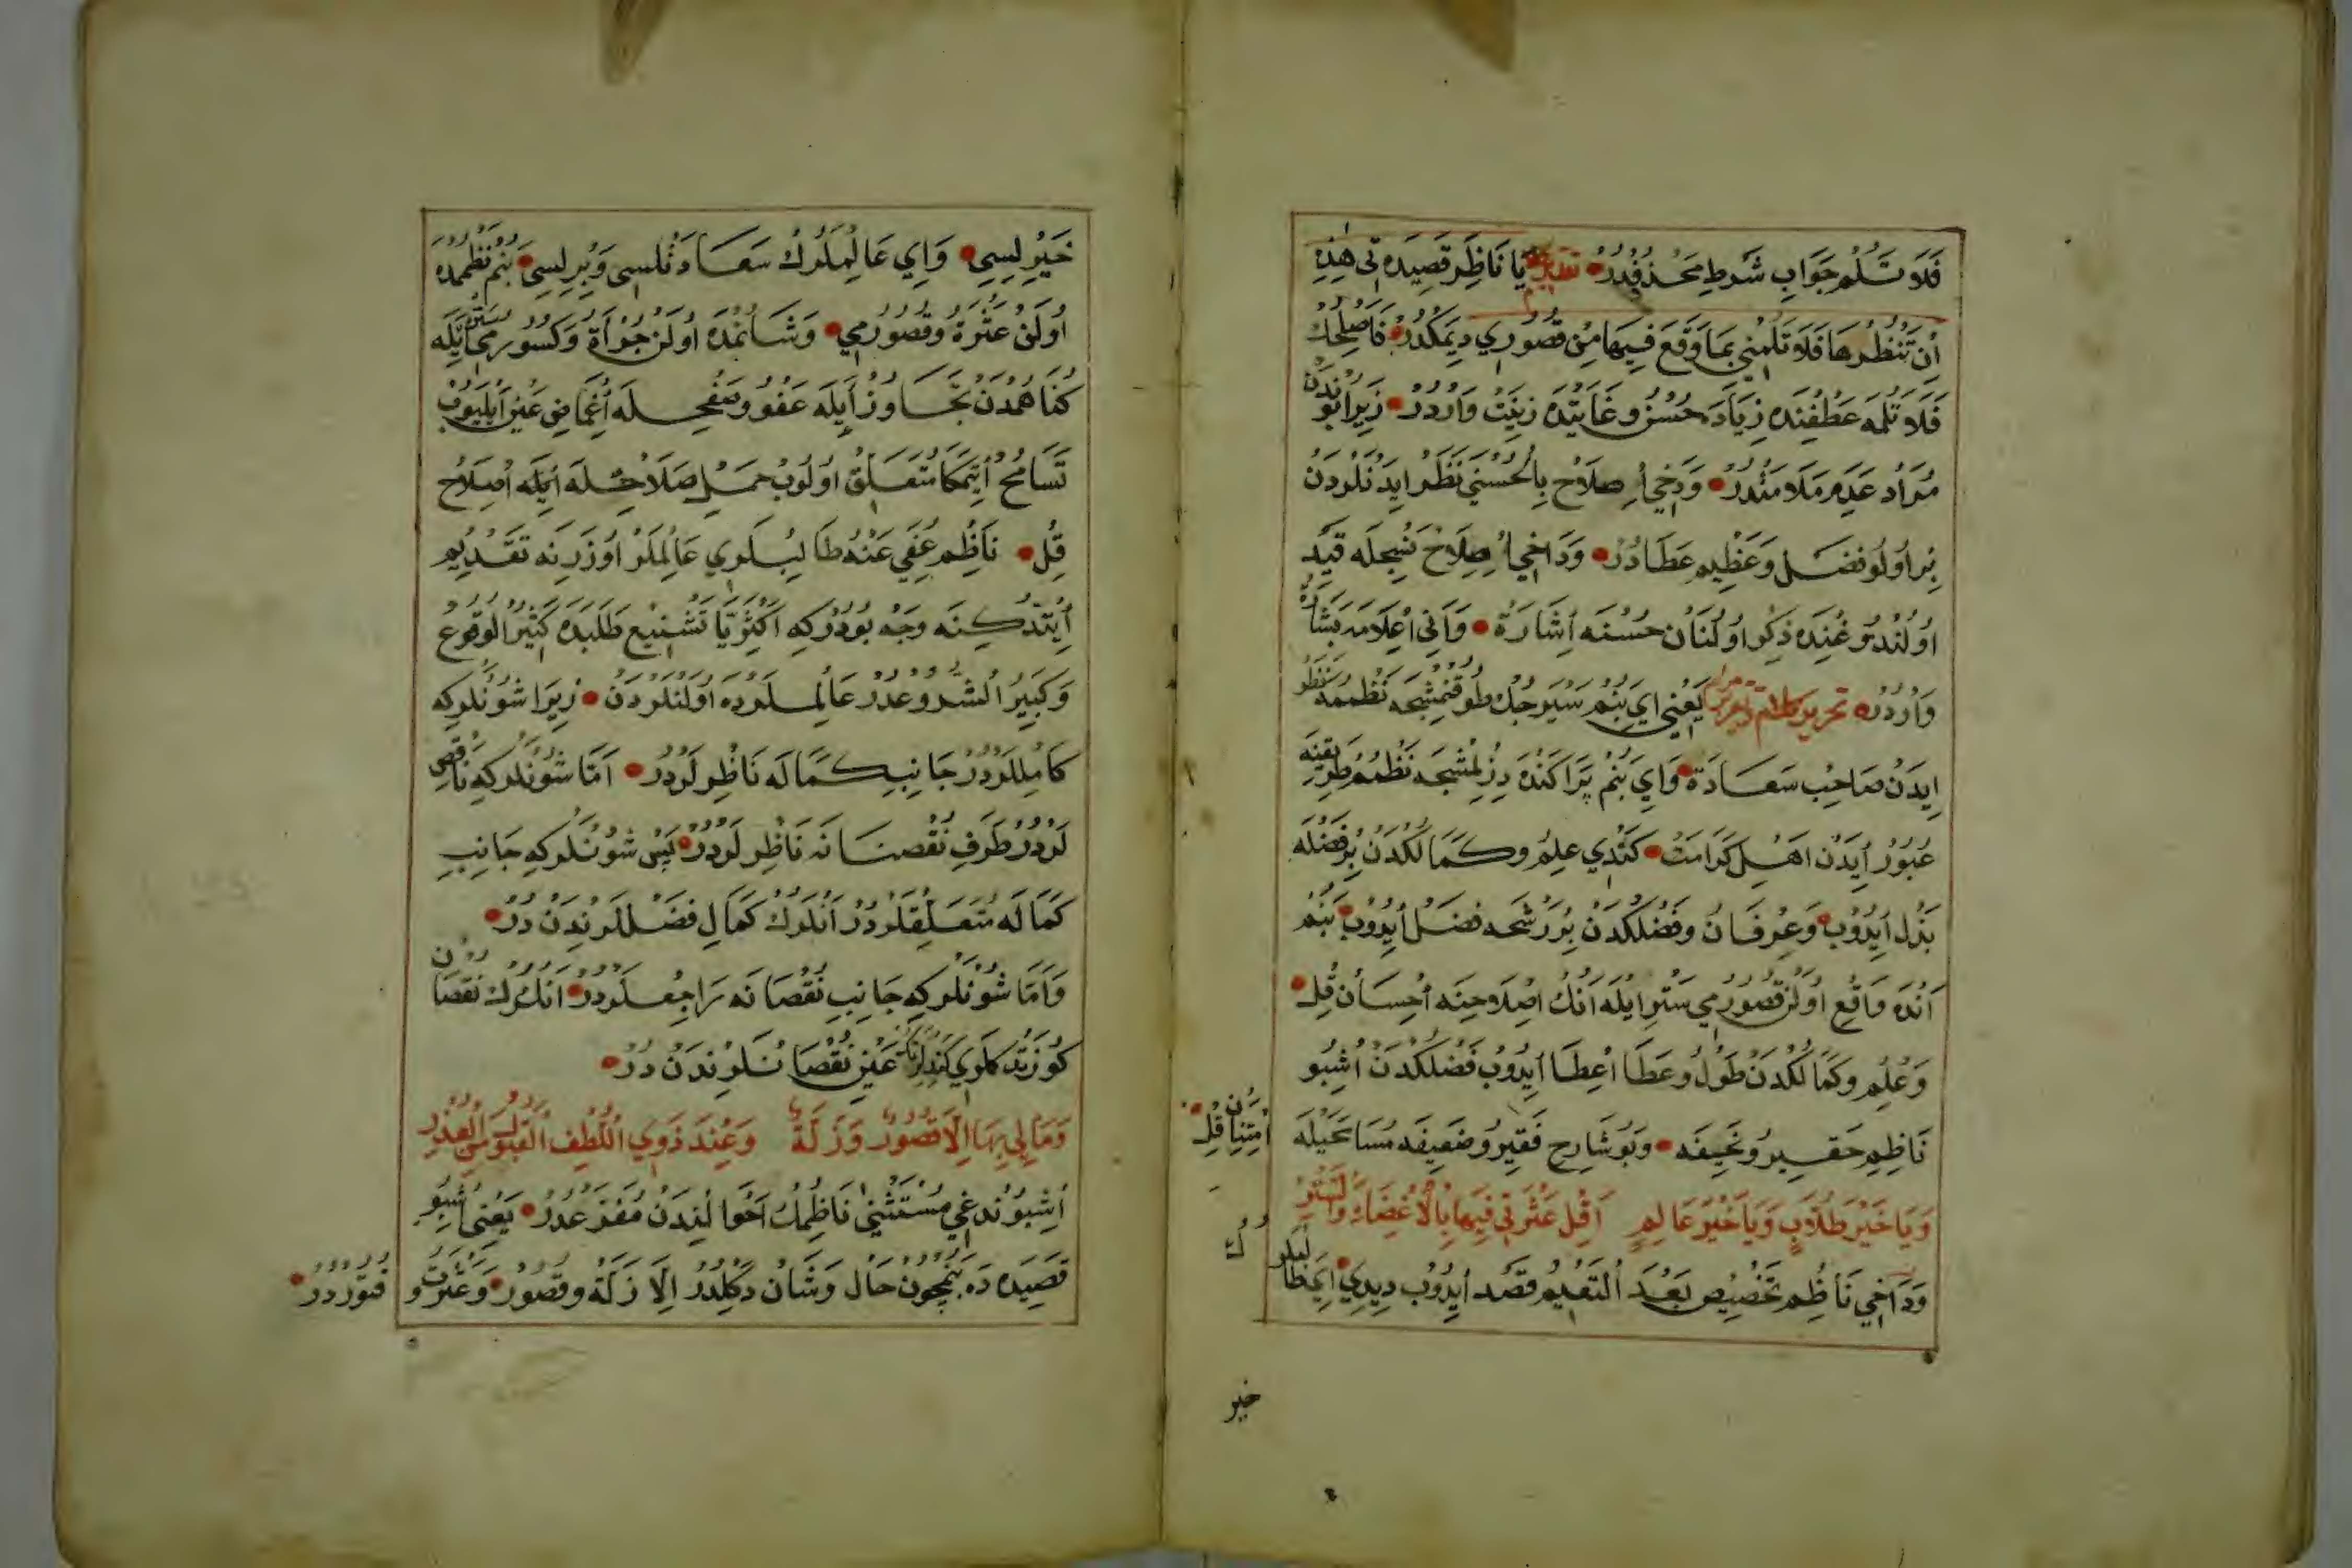 فَلَا تَلُمْ جَوَابِ شَرْطِ مَحْذُوفْدُرْ يَا نَاظِرَ قَصِيدَتِي هٰذِهِ
اِنْ تَنْظُرْهَا فَلَا تَلُمْنِي بِمَا وَقَعَ فِيهَا مِنْ قُصُورِي دِيمَكْدُرْ فَاَصْلِحْكْ
فَلَا تَلُمَه عَطْفِنْدَه زِيَادَه حُسْنْ وغَايَتْدَه زِينَتْ وَارْدُرْ زِيرَا بُونْدَنْ
مُرَادْ عَدَمِ مَلَامَتْدُرْ وَدَخِي اِصْلَاحْ بِالْحُسْنَي نَظَرْ اِيدَنْلَرْدَنْ
بِرْ اُولُو فَضْلْ وَعَظِيمْ عَطَادُرْ وَدَاخِي اِصِلَاحْ نَسْجِلَه قَيْدْ
اُولُنْدُوغُنْدَه ذِكْرْ اُولُنَانْ حُسْنَه اِشَارَةْ وَآنِي اِعْلَامَه بَشَارَةْ
وَارْدُرْ يَعْنِي اَيْ بَنُمْ سَيْرَجُكْ طُوقُنْمِشْجَه نَظْمُمَه نَظَرْ
اِيدَنْ صَاحِبْ سَعَادَةْ وَاَيْ بَنُمْ پَرَاكَنْدَه دِزِلْمِشْجَه نَظْمُمْ طَرِيقِنَه
عُبُورْ اِيدَنْ اَهْلِ كَرَامَتْ كَنْدِي عِلِمْ وكَمَالُكْدَنْ بُرْ فَضْلَه
بَذْلْ اِيدُوبْ وَعِرْفَانْ وفَضْلُكْدَنْ بُرْ رَشْحَه فَضْلْ اِيدُوبْ بَنُمْ
اَنْدَه وَاقِعْ اُولَنْ قُصُورُمِي سَتْرْ اِيلَه اَنُكْ اِصْلَاحِنَه اِحْسَانْ قِلْ
وَعِلْمْ وكَمَالُكْدَنْ طَوْلْ وعَطَا اِعْطَا اِيدُوبْ فَضْلُكْدَنْ اُشْبُو
نَاظِمِ حَقِيرْ وُنَحِيفَه وَبُو شَارِحِ فَقِيرْ وُضَعِيفَه مُسَامَحَيْلَه
اِمْتِنَانْ قِلْ
وَيَا خَيْرَ طُلَّابٍ وَيَا خَيْرَ عَالِمٍ اَقِلْ عَثْرَتِي فِيهَا بِالْاِغْضَاءِ وَالسَّتْرِ
وَدَاخِي نَاظِمْ تَخْصِيصْ بَعْدَ التَّعْمِيمْ قَصْدْ اِيدُوبْ دِيدِي اَيْ طَالِبْلَرُكْ
خير
خَيْرْلِسِي وَاِي عَالِمْلَرُكْ سَعَادَتْلُسِي وَبِرْلِسِي بَنِمْ نَظْمُمْدَه
اُولَنْ عَثْرَةْ وقُصُورُمِي وَشَانُمْدَه اُولَنْ جُرْأَةْ وَكُسُورُمِي سَتْرْ اَيْلَه
كُنَاهُمْدَنْ تَجَاوُزْ اَيْلَه عَفْوْ وصَفْحِلَه اِغْمَاضِ عَيْنْ اَيْلَيُوبْ
تَسَامُحْ اِيتْمَكَا مُتَعَلِّقْ اُولُوبْ حَمْلِ صَلَاحْلَه اَيْلَه اِصْلَاحْ
قِلْ نَاظِمْ عُفِيَ عَنْهُ طَالِبْلَرِي عَالِمْلَرْ اُوزَرِنَه تَقْدِيمْ
اِيتْدُكِنَه وَجْه بُودُرْكِه اَكْثَرِيَّا تَشْنِيعْ طَلَبَدَه كَثِيرُ الْوُقُوعْ
وَكَبِيرُ الشُّرُوعْدُرْ عَالِمْلَرْدَه اُولَنْلَرْدَنْ زِيرَا شُونْلَرْكِه
كَامِلْلَرْدُرْ جَانِبِ كَمَالَه نَاظِرْلَرْدُرْ اَمَّا شُونْلَرْكِه نَاقِصْ
لَرْدُرْ طَرَفِ نُقْصَانَه نَاظِرْلَرْدُرْ پَسْ شُونْلَرْكِه جَانِبِ
كَمَالَه مُتَعَلِّقْلَرْدُرْ اَنْلَرُكْ كَمَالِ فَضْلْلَرِنْدَنْ دُرْ
وَاَمَّا شُونْلَرْكِه جَانِبِ نُقْصَانَه رَاجِعْلَرْدُرْ اَنْلَرُكْ نُقْصَانْ
كُوزَتْدُكْلَرِي كَنْدُلَرِنُكْ عَيْنِ نُقْصَانْلَرِنْدَنْ دُرْ
وَمَا لِي بِهَا اِلَّا قُصُورٌ وَزَلَّةٌ وَعِنْدَ ذَوِي اللُّطْفِ الْقَبُولُ مِنَ الْعُذْرِ
اِشْبُونْدَغِي مُسْتَثْنَي نَاظِمُكْ اَحْوَالِنْدَنْ مُفَرَّغْدُرْ يَعْنِي اُشْبُو
قَصِيدَه دَه بَنِمْچُونْ حَالْ وَشَانْ دَكُلْدُرْ اِلَّا زَلَّةْ وقُصُورْ وَعَثْرَتْ و فُتُورْدُرْ